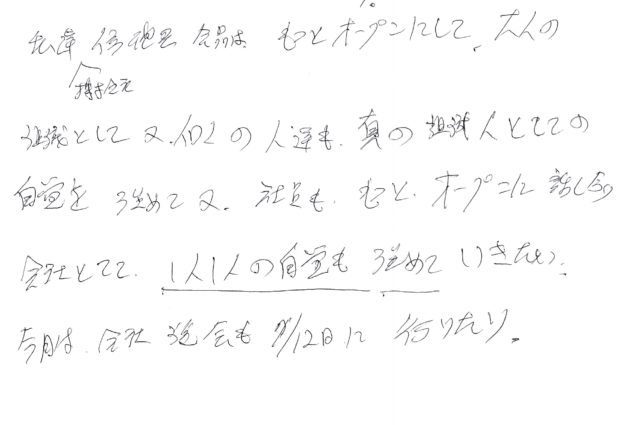 会員は もっとオープンにして、大人の
組織として又、個々の人達も、真の組織人としての
自覚を 強めて又、社員も、もっと、オープンに 話し合う
会社として、1人1人の自覚も 強めて いきたい。
今月は、会社 総会も /12日に 行いたい。